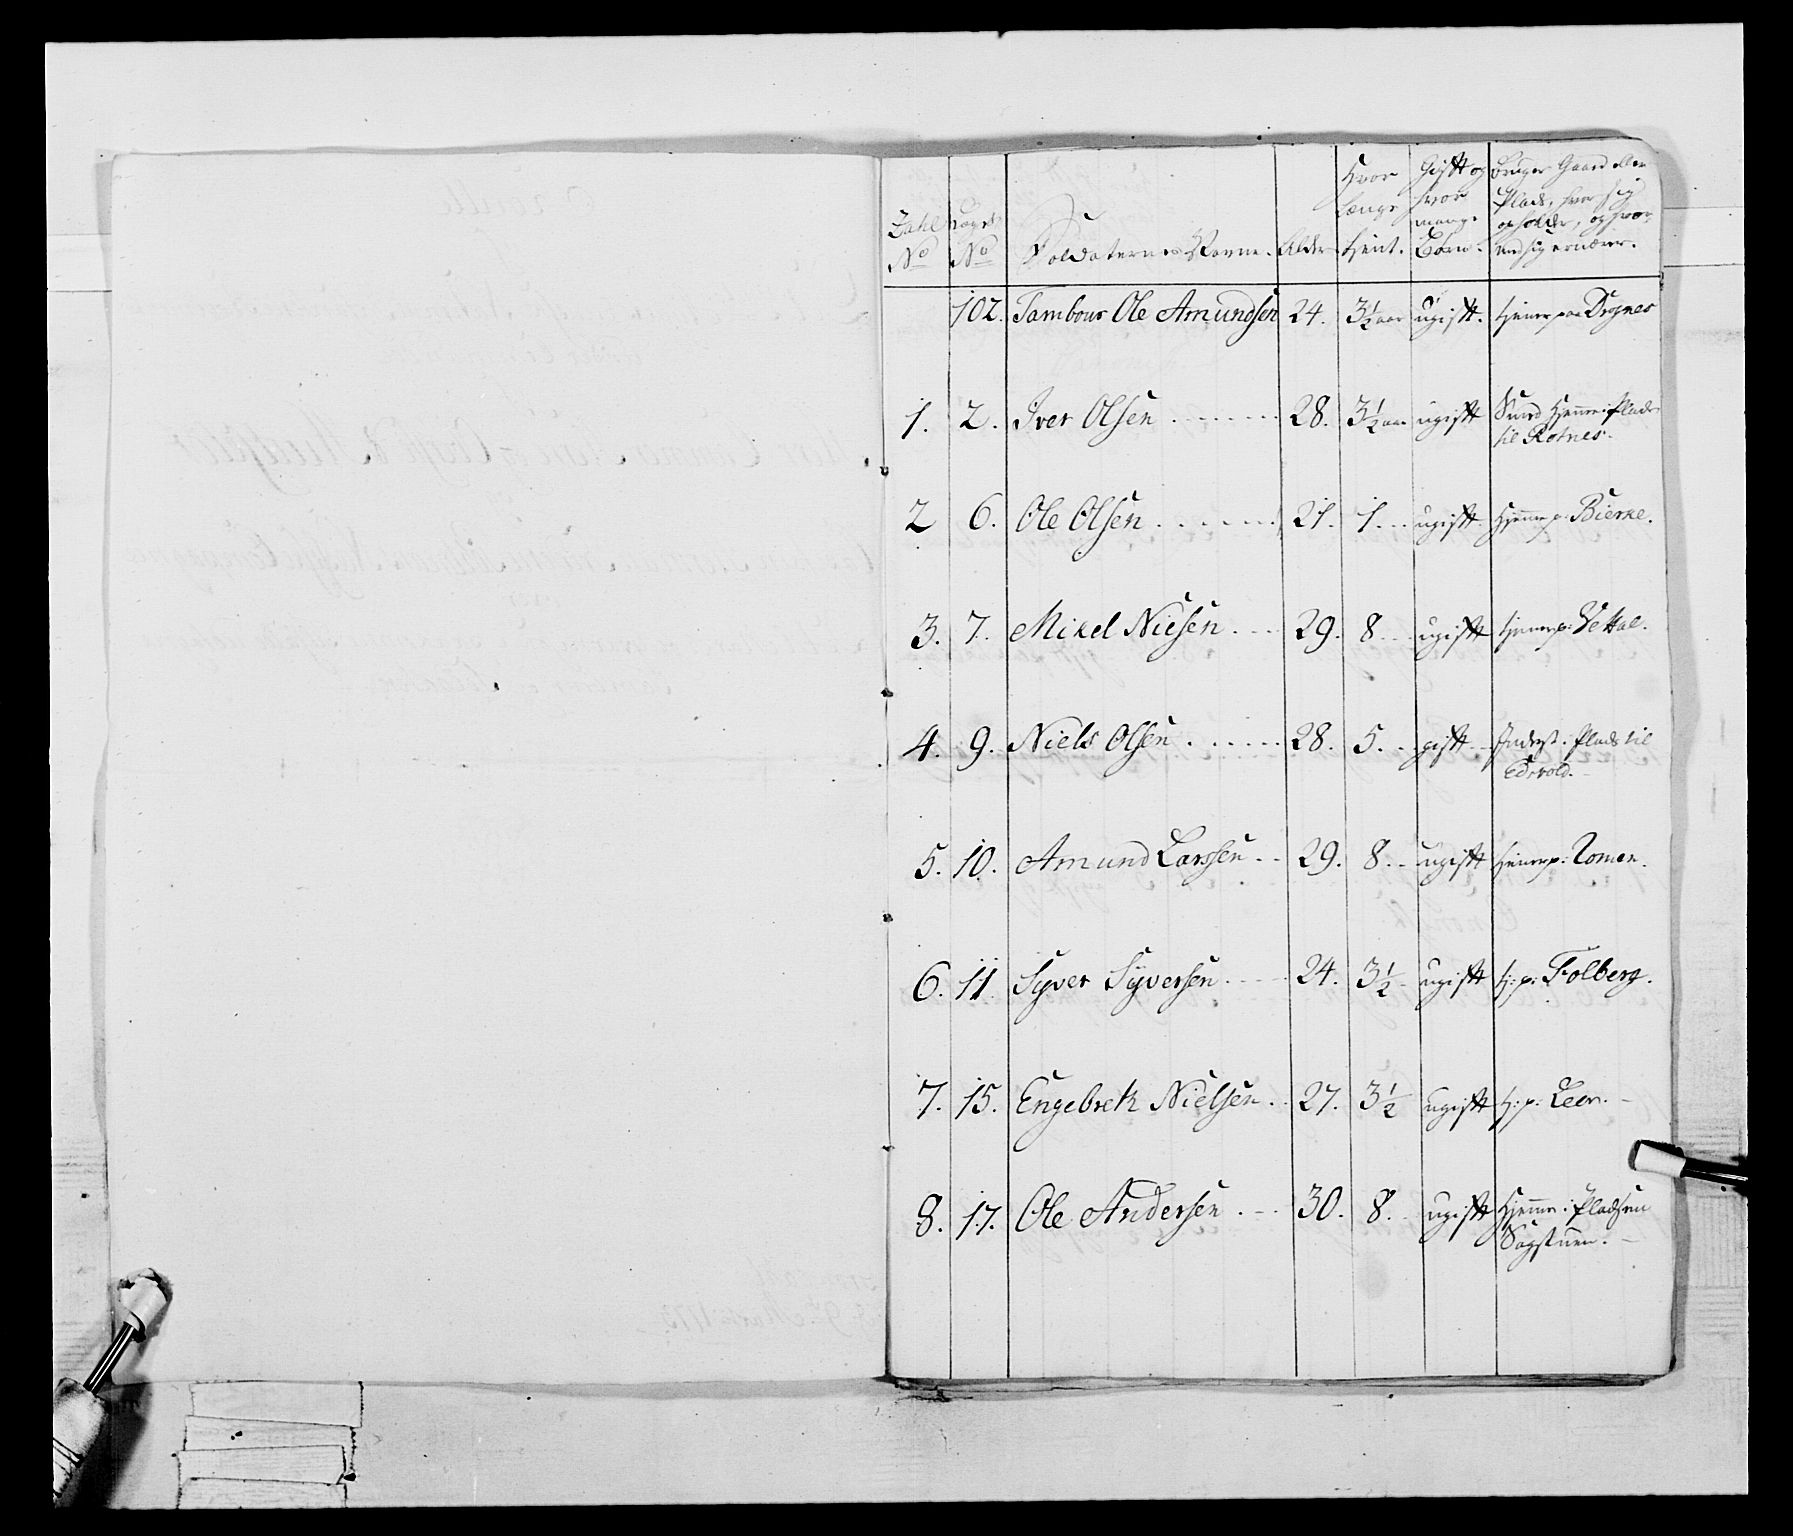 Zahl No
Laegds No
Soldaternes Navne.
Alder
Hvor længe tient.
Gift og hvor mange Børn.
Bruger Gaard eller Plads, hvor sig opholder, og hvor med sig ernærer.
102. Tambour Ole Amundsen 24. 3½ aar ugift. tiener paa Dognes
1. 2. Iver Olsen 28. 3½ aar ugift Hjemme i Plads
til Rotnes.
2 6. Ole Olsen 21. 1. ugift Hjemme p: Bierke.
3. 7. Mikel Nielsen 29. 8 ugift tiener p: Vettal.
4. 9. Niels Olsen 28. 5. gift Inderst i Plads til
Edsvold.
5. 10. Amund Larssen 29. 8. ugift tiener p: Romen.
6. 11 Syver Syversen 24. 3½ ugift t: p: Folberg.
7. 15. Engebrek Nielsen 27. 3½ ugift t: p: Leer.
8. 17. Ole Andersen 30. 8. ugift Hjemme i Pladsen
Sagstuen.